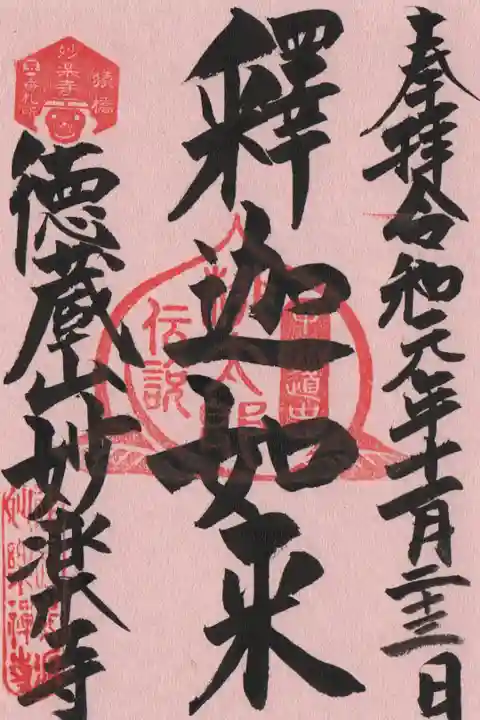 奉拝令和元年十一月二十三日
釋迦如来
徳蔵山妙楽寺
妙楽寺
猿橋
桃太郎
伝説